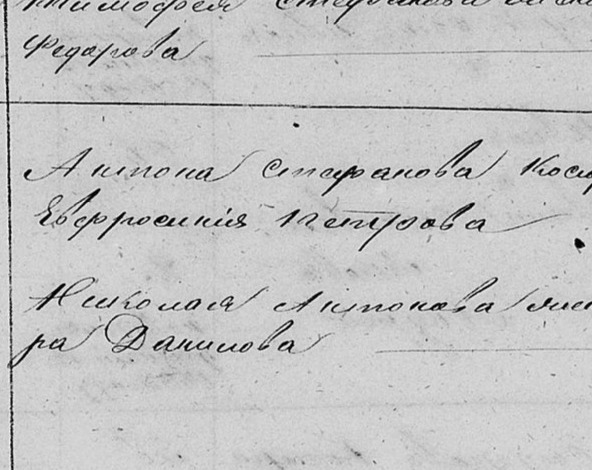 Тимофея Стефанова
Федорова
Антона Стефанова
Евфросинія Петрова
Николая Антонова
ра Данилова